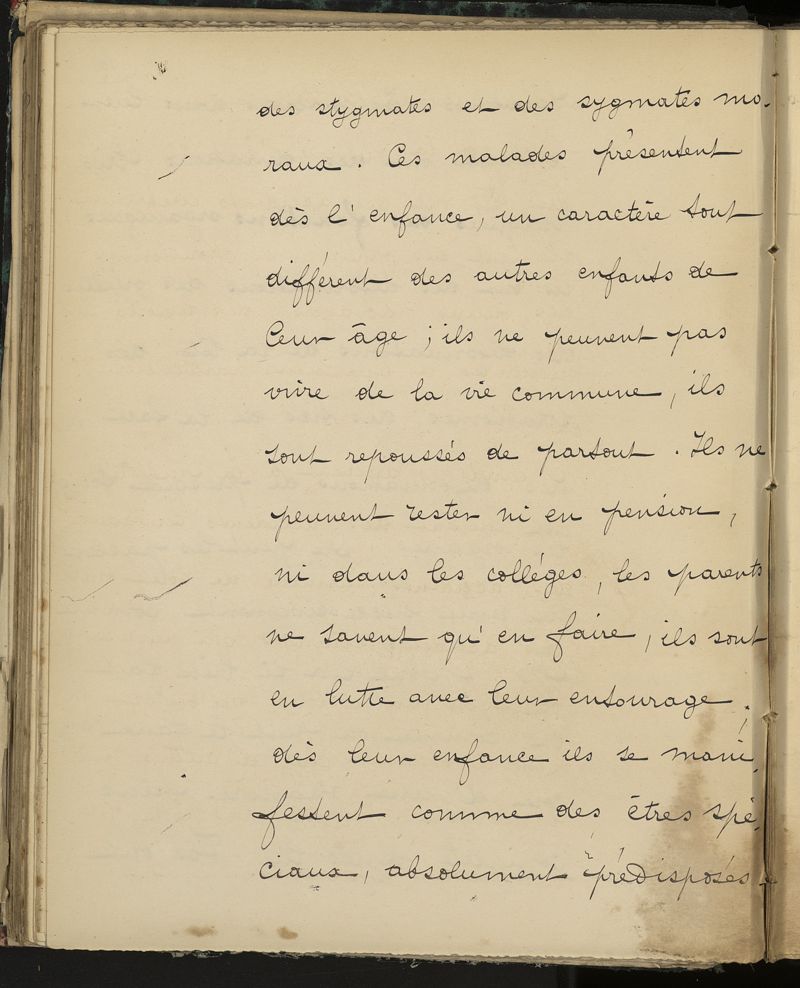 des stygmates et des sygmates mo-
raux. Ces malades présentent
dès l'enfance, un caractère tout
différent des autres enfants de
leur âge ; ils ne peuvent pas
vivre de la vie commune, ils
sont repoussés de partout. Ils ne
peuvent rester ni en pension,
ni dans les colléges, les parents
ne savent qu'en faire, ils sont
en lutte avec leur entourage ;
dès leur enfance ils se mani-
festent comme des êtres spé-
ciaux, absolument prédisposés